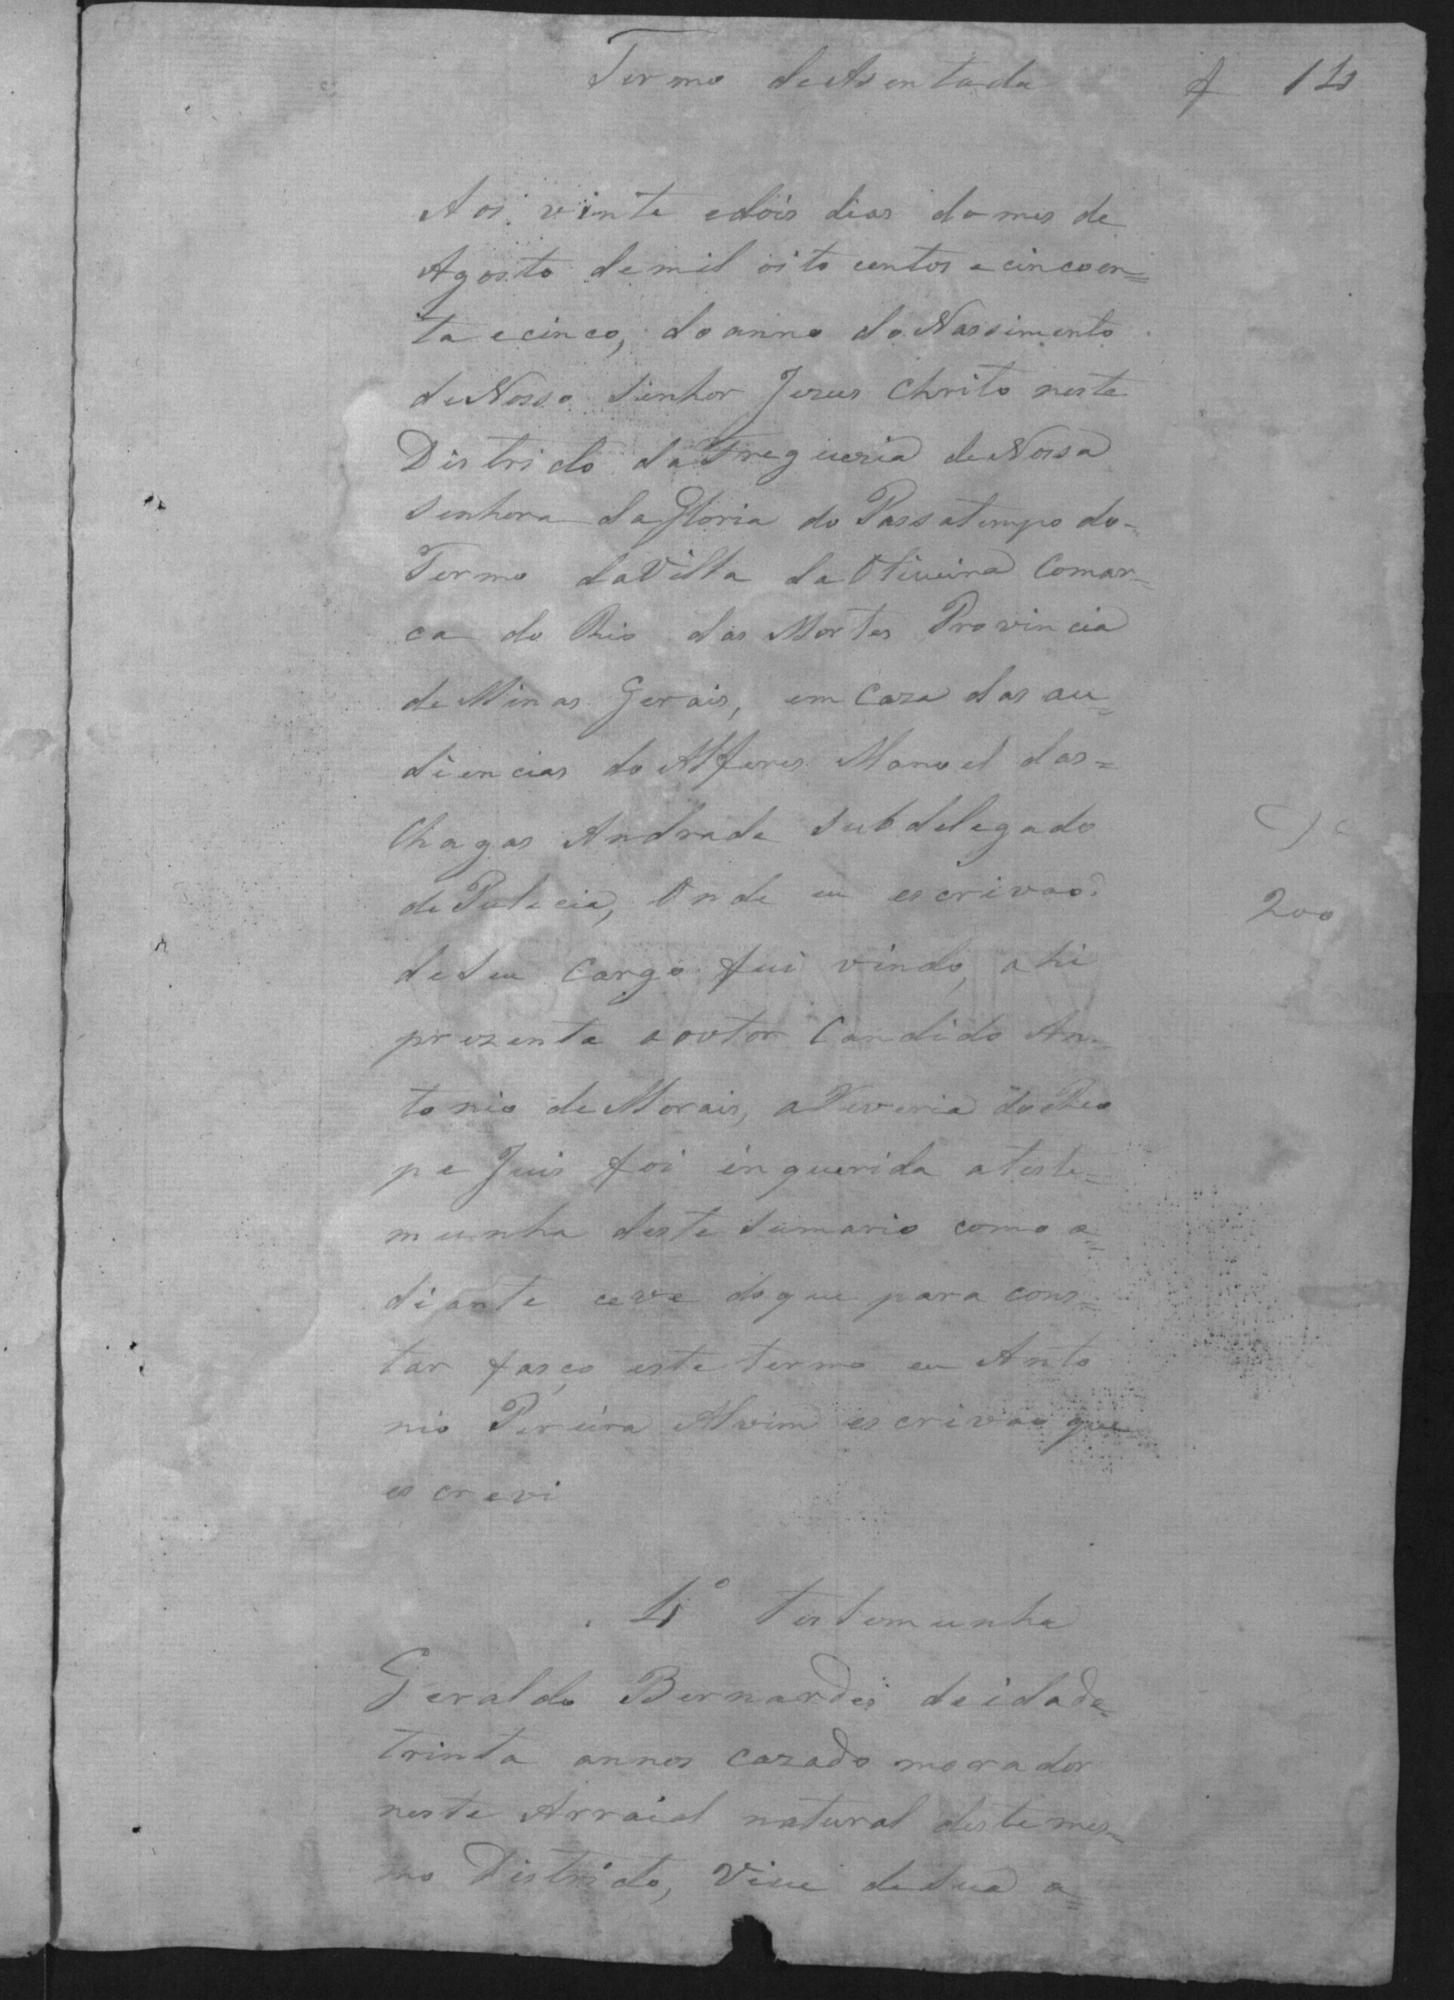 Termo de Asentada
f 14
Aos vinte edois dias do mes de
Agosto de mil oito centos e cincoen=
ta ecinco, do anno do Nassimento
de Nosso Senhor Jezus Chrito neste
Districto da Fregueria de Nossa
Senhora da Gloria do Passatempo do=
Termo da Villa da Oliveira Comar=
ca do Rio das Mortes Provincia
de Minas Gerais, em Caza das au=
diencias do Alferes Manoel das=
Chagas Andrade Subdelegado
de Pulecia, Onde eu escrivao
deseu Cargo fui vindo, ahi
prezente aoutor Candido An=
tonio de Morais, a Reveria do Reo
pe Juis foi inquerida ateste=
munha deste Sumario como a=
diante ceve doque para cons=
tar fasço este termo eu Anto
nio Pereira Alvim escrivao que
escrevi
200
4º testemunha
Geraldo Bernardes de idade=
trinta annos cazado morador
neste Arraial natural deste mes=
mo Districto, Vive de Sua a=